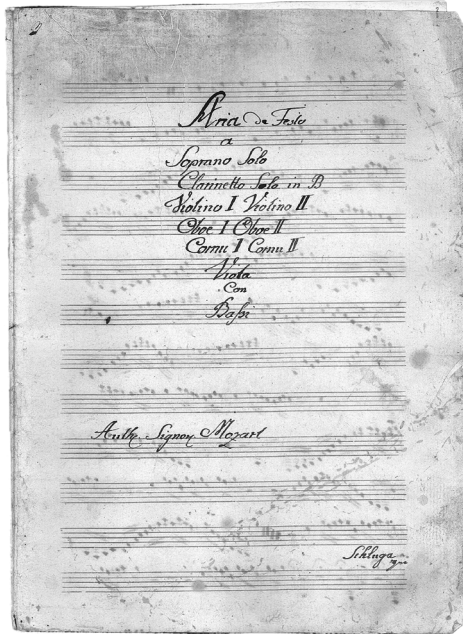 Aria de Festo
a
Soprano Solo
Clarinetto Solo in B
Violino I Violino II
Oboe I Oboe II
Cornu I Cornu II
Viola
Con
Bassi
Auth. Signor Mozart
Schluga